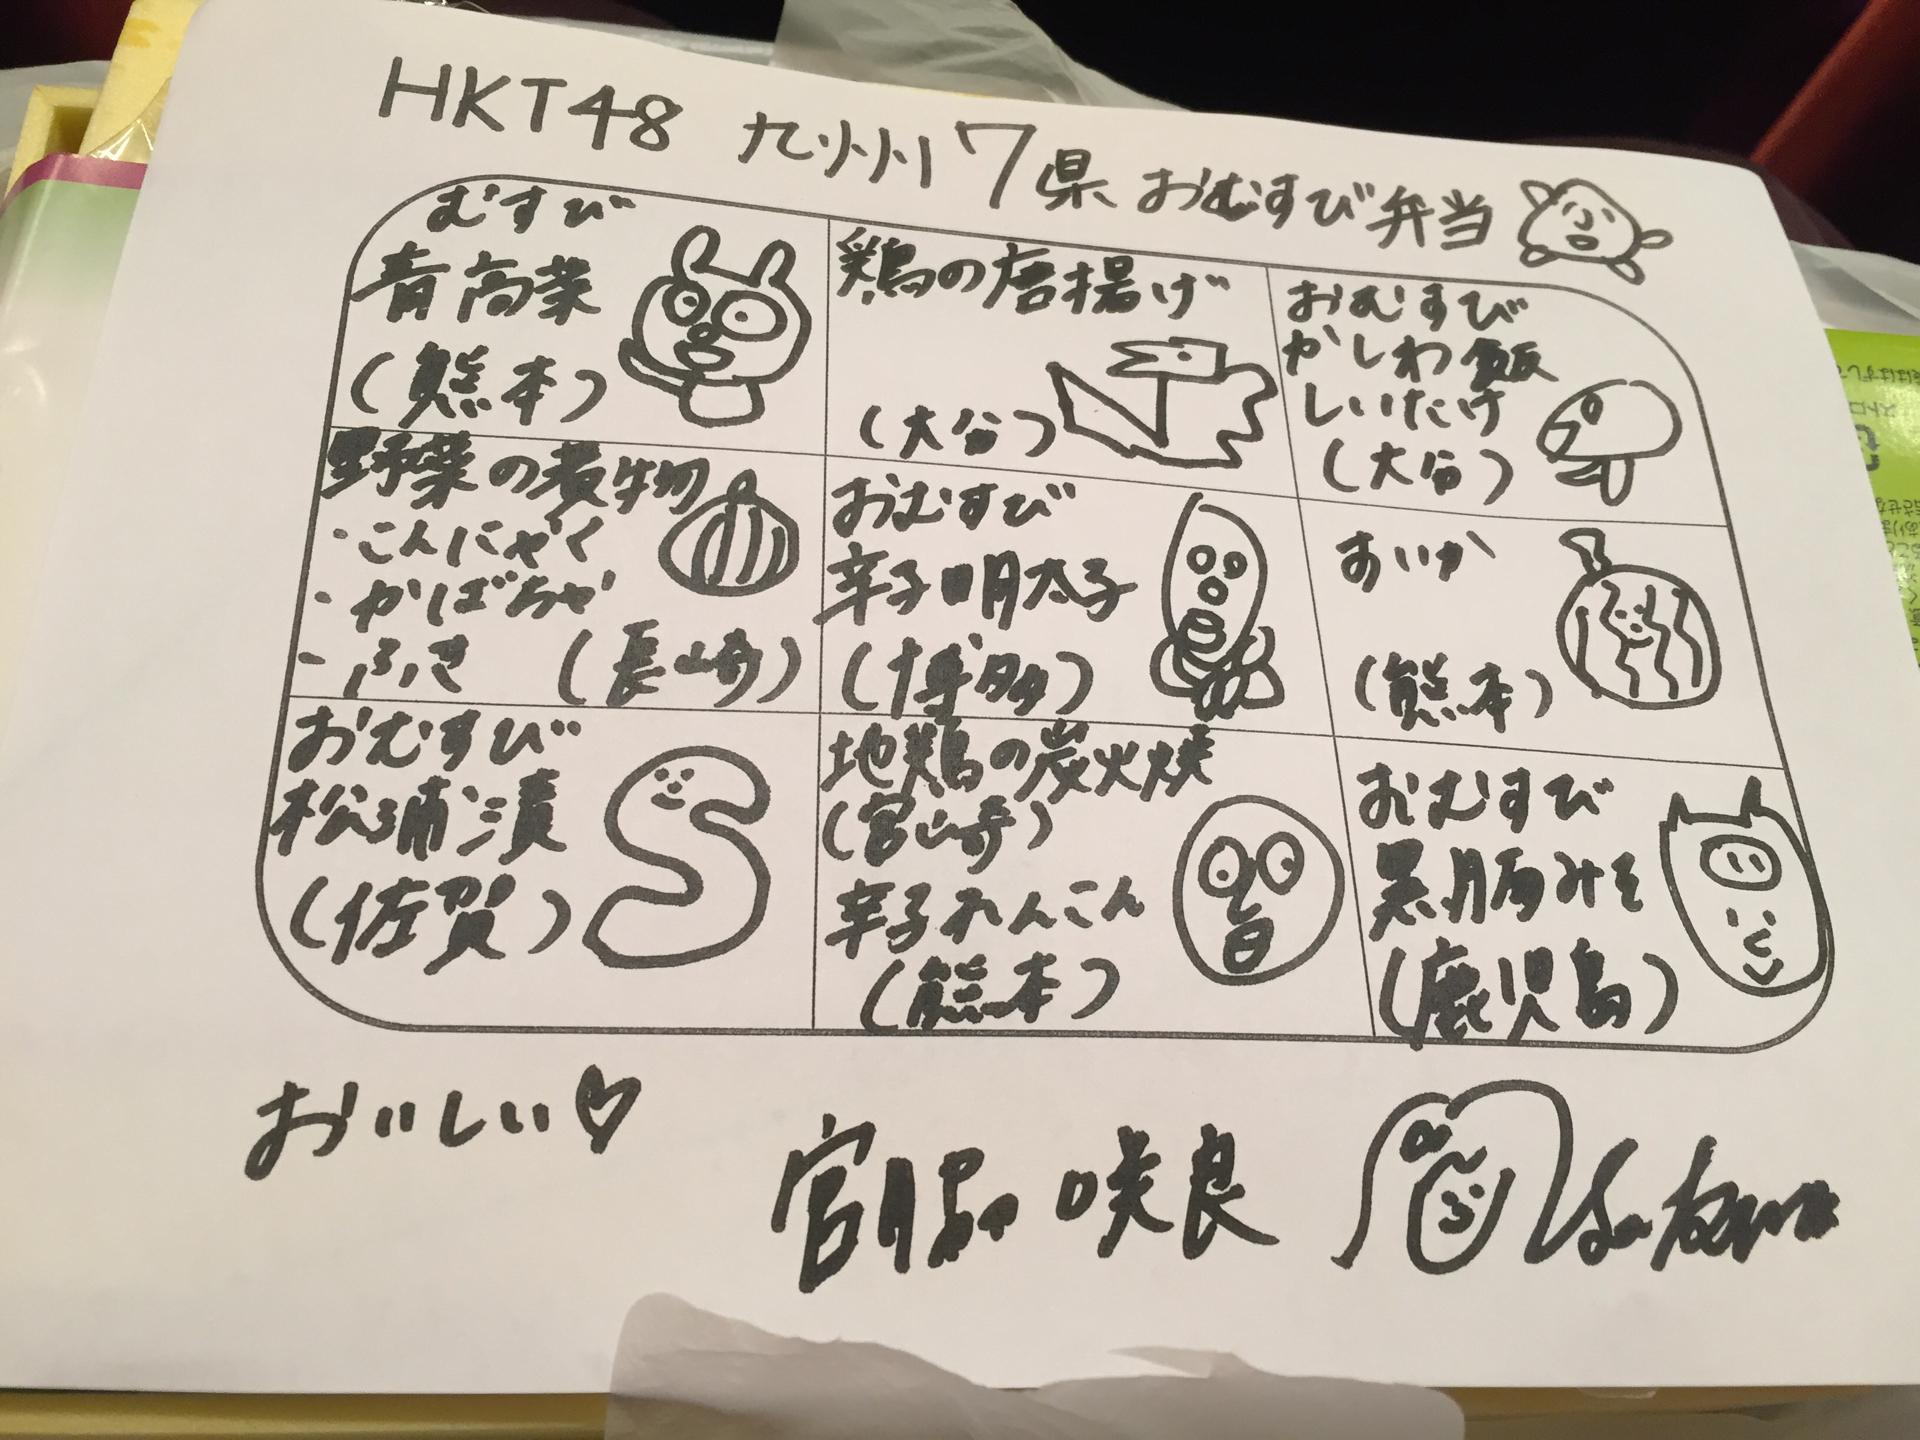 HKT48 九州7県 おむすび弁当
むすび
青高菜
(熊本)
鶏の唐揚げ
(大分)
おむすび
かしわ飯
しいたけ
(大分)
野菜の煮物
・こんにゃく
・かぼちゃ
・ふき (長崎)
おむすび
辛子明太子
(博多)
すいか
(熊本)
おむすび
松浦漬
(佐賀)
地鶏の炭火焼
(宮崎)
辛子れんこん
(熊本)
おむすび
黒豚みそ
(鹿児島)
おいしい♡
宮脇 咲良